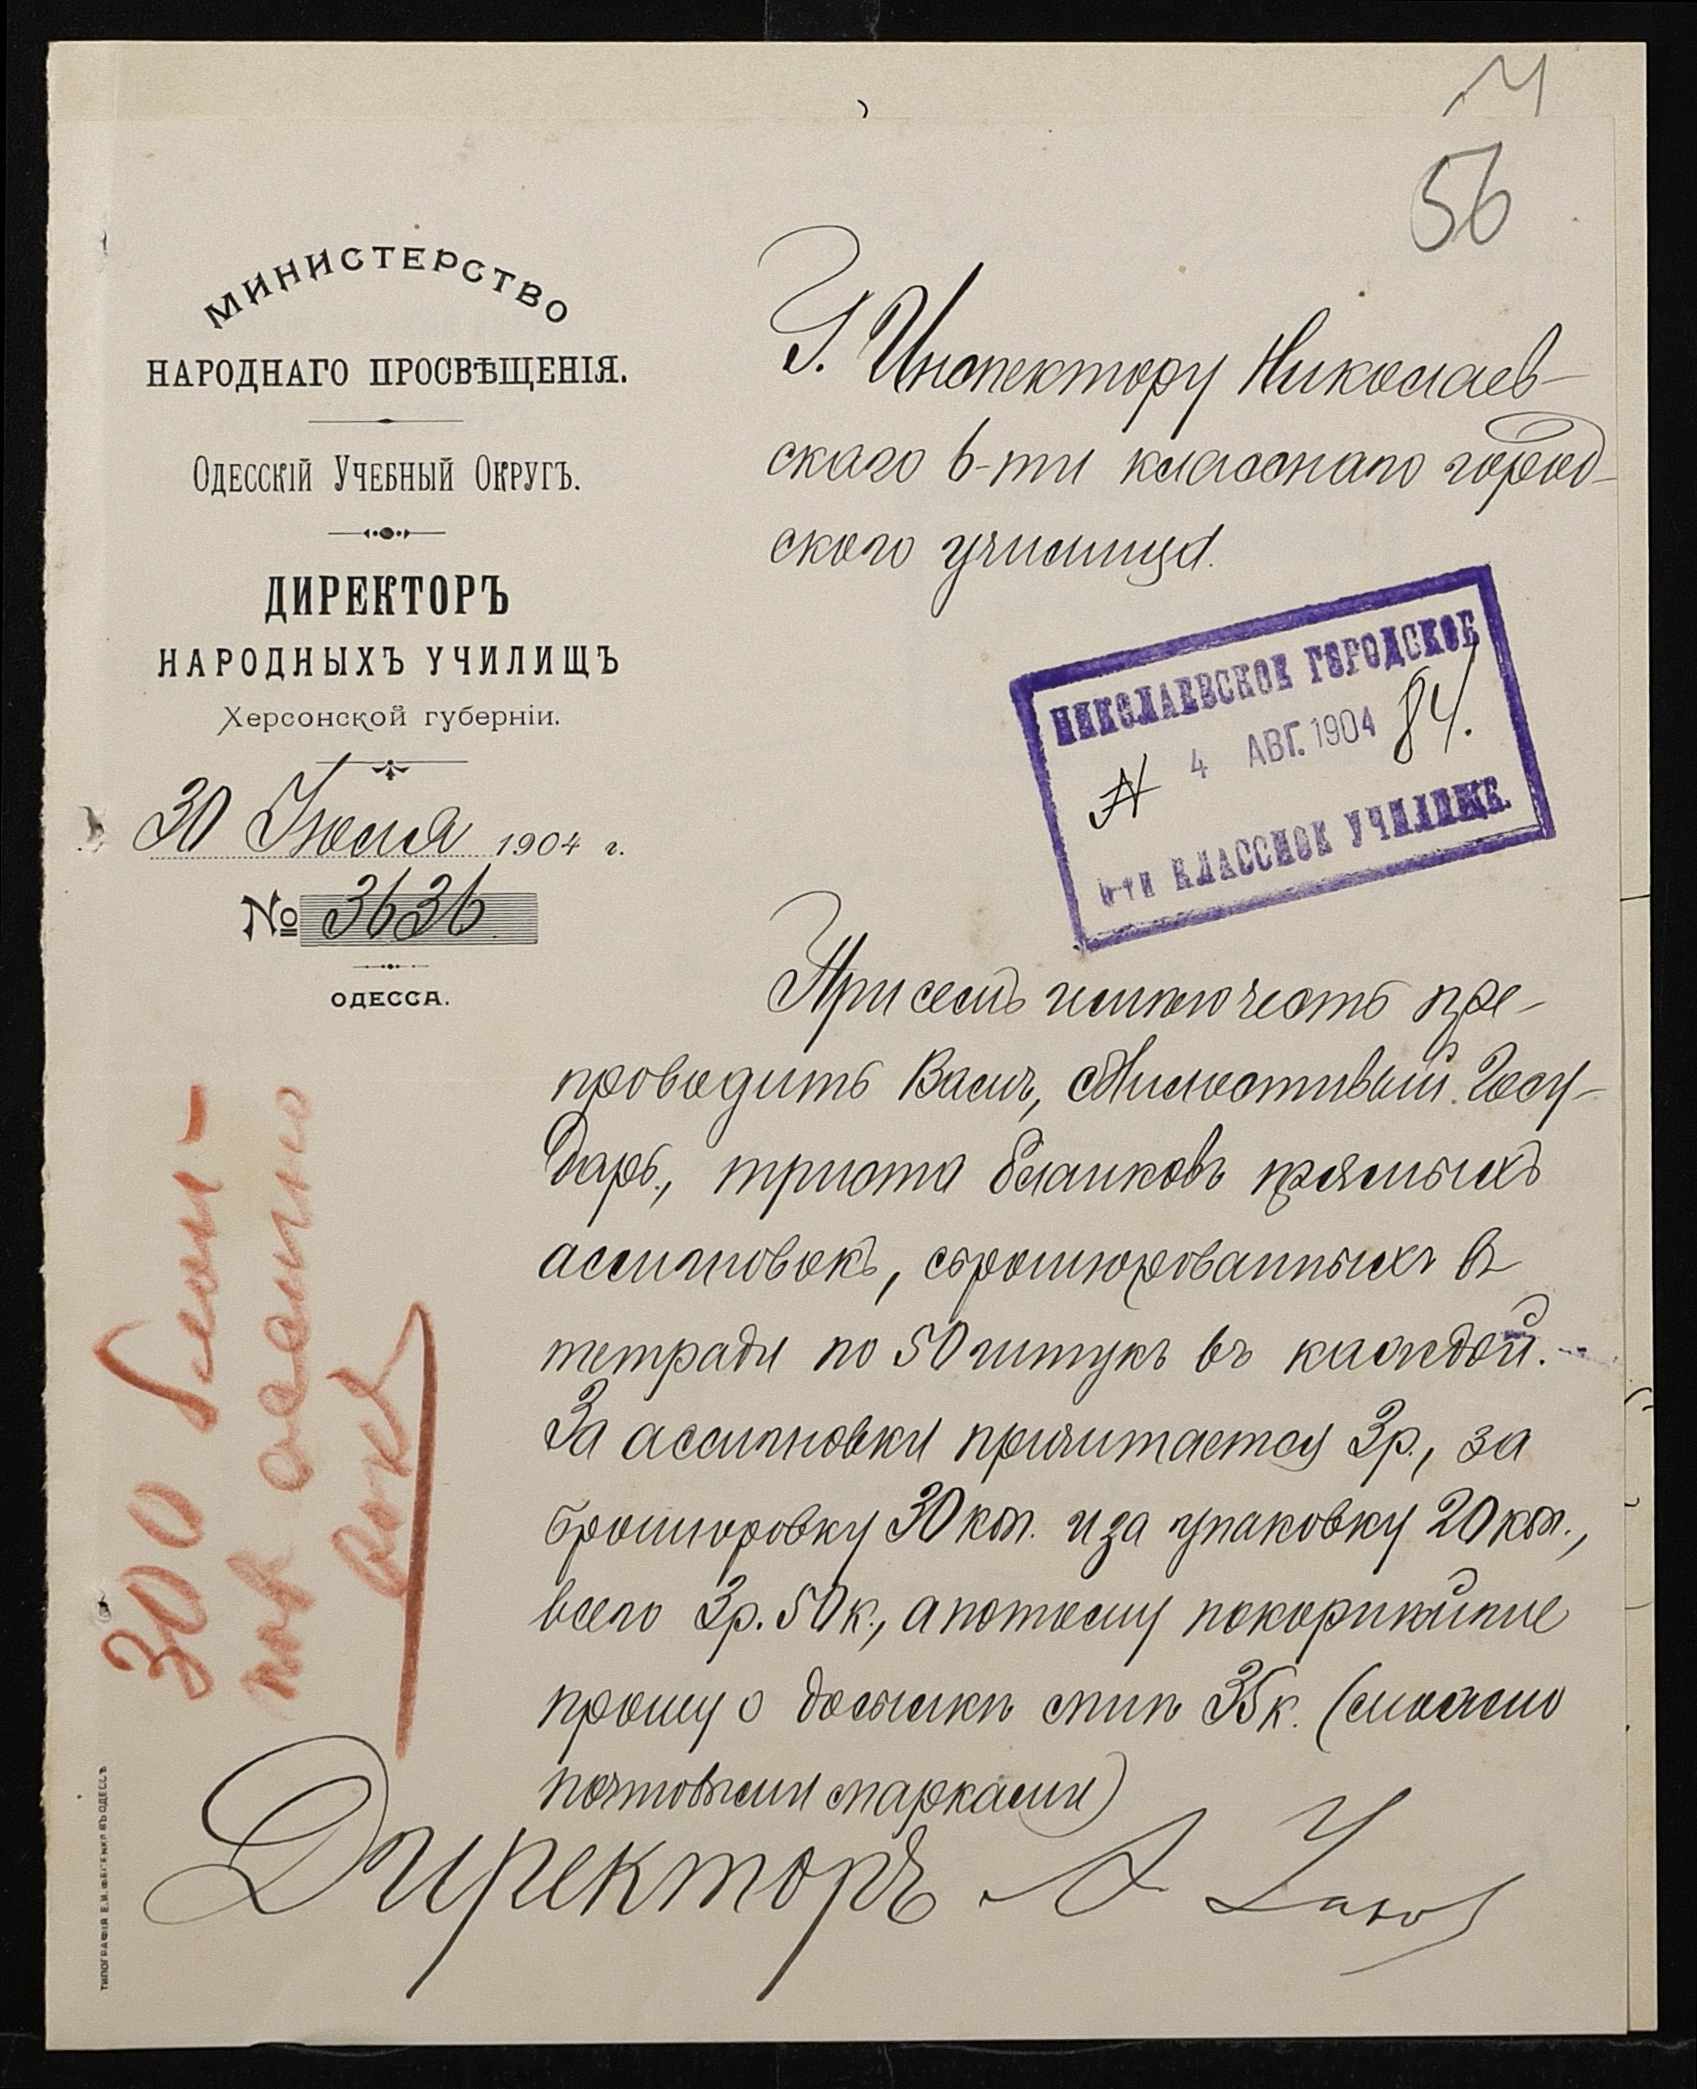 56
МИНИСТЕРСТВО
НАРОДНАГО ПРОСВѢЩЕНІЯ.
Одесскій Учебный Округъ.
ДИРЕКТОРЪ
НАРОДНЫХЪ УЧИЛИЩЪ
Херсонской губерніи.
30 Іюля 1904 г.
№ 3636
ОДЕССА.
Г. Инспектору Николаев-
скаго 6-ти класснаго город-
ского училища.
НИКОЛАЕВСКОЕ ГОРОДСКОЕ
4 АВГ. 1904
№ 84.
6-ти КЛАССНОЕ УЧИЛИЩЕ.
При семъ имѣю честь пре-
проводить Вамъ, Милостивый Госу-
дарь, триста бланковъ прямыхъ
ассигновокъ, сброшюрованныхъ въ
тетради по 50 штукъ въ каждой.
За ассигновки причитается 3р., за
брошюровку 30 коп. и за упаковку 20 коп.,
всего 3р. 50к., а потому покорнѣйше
прошу о досылкѣ мнѣ 35к. (можно
почтовыми марками)
Директоръ А.
300 блан-
ков ассигно
вокъ
ТИПОГРАФІЯ Е.И. ФЕСЕНКО ВЪ ОДЕССѢ